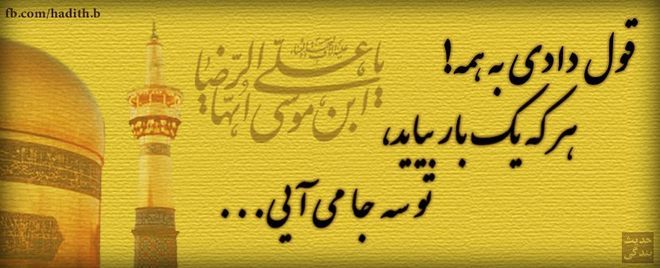 fb.com/hadith.b
قول دادی به همه!
هر که یک بار بیاید،
تو سه جا می آیی...
یا علی
ابن موسی الرضا
ایها
حدیث
بندگی